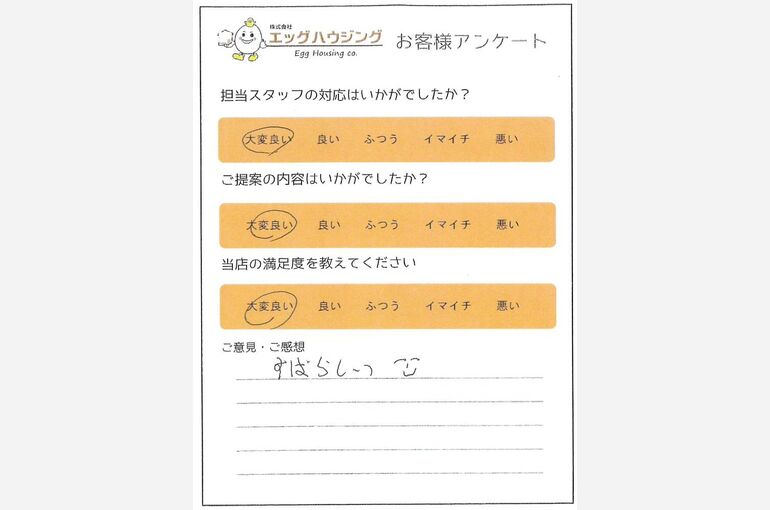 株式会社
エッグハウジング
Egg Housing co.
お客様アンケート
担当スタッフの対応はいかがでしたか？
大変良い 良い ふつう イマイチ 悪い
ご提案の内容はいかがでしたか？
大変良い 良い ふつう イマイチ 悪い
当店の満足度を教えてください
大変良い 良い ふつう イマイチ 悪い
ご意見・ご感想
すばらしーっ